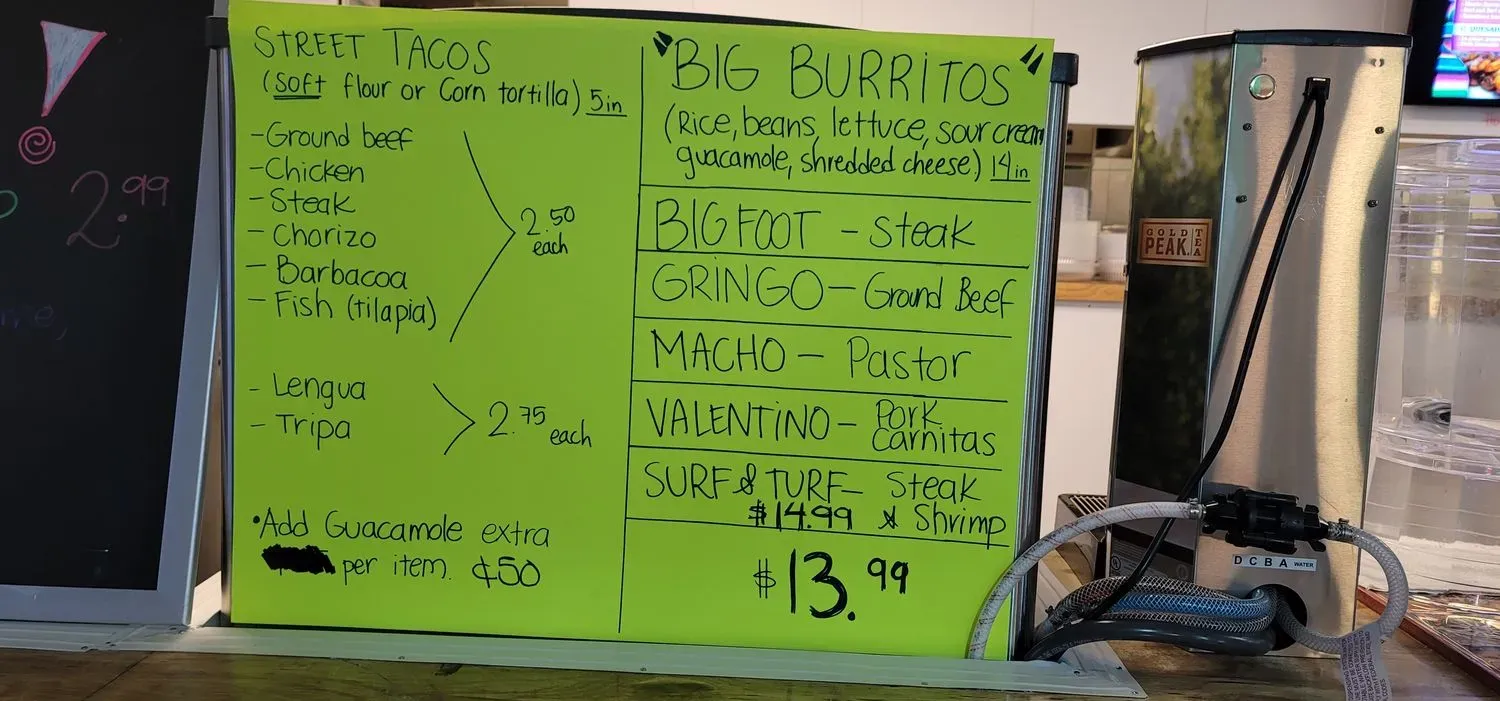 2.99
STREET TACOS
(SOFT flour or Corn tortilla) 5in
-Ground beef
-Chicken
-Steak
-Chorizo
-Barbacoa
-Fish (tilapia)
2.50
each
-Lengua
-Tripa
2.75 each
•Add Guacamole extra
per item. ¢50
"BIG BURRITOS"
(Rice, beans, lettuce, sour cream
guacamole, shredded cheese) 14in
BIGFOOT - Steak
GRINGO - Ground Beef
MACHO - Pastor
VALENTINO - Pork
Carnitas
SURF & TURF - Steak
$14.99 & Shrimp
$13.99
GOLD
PEAK.
TEA
D C B A WATER